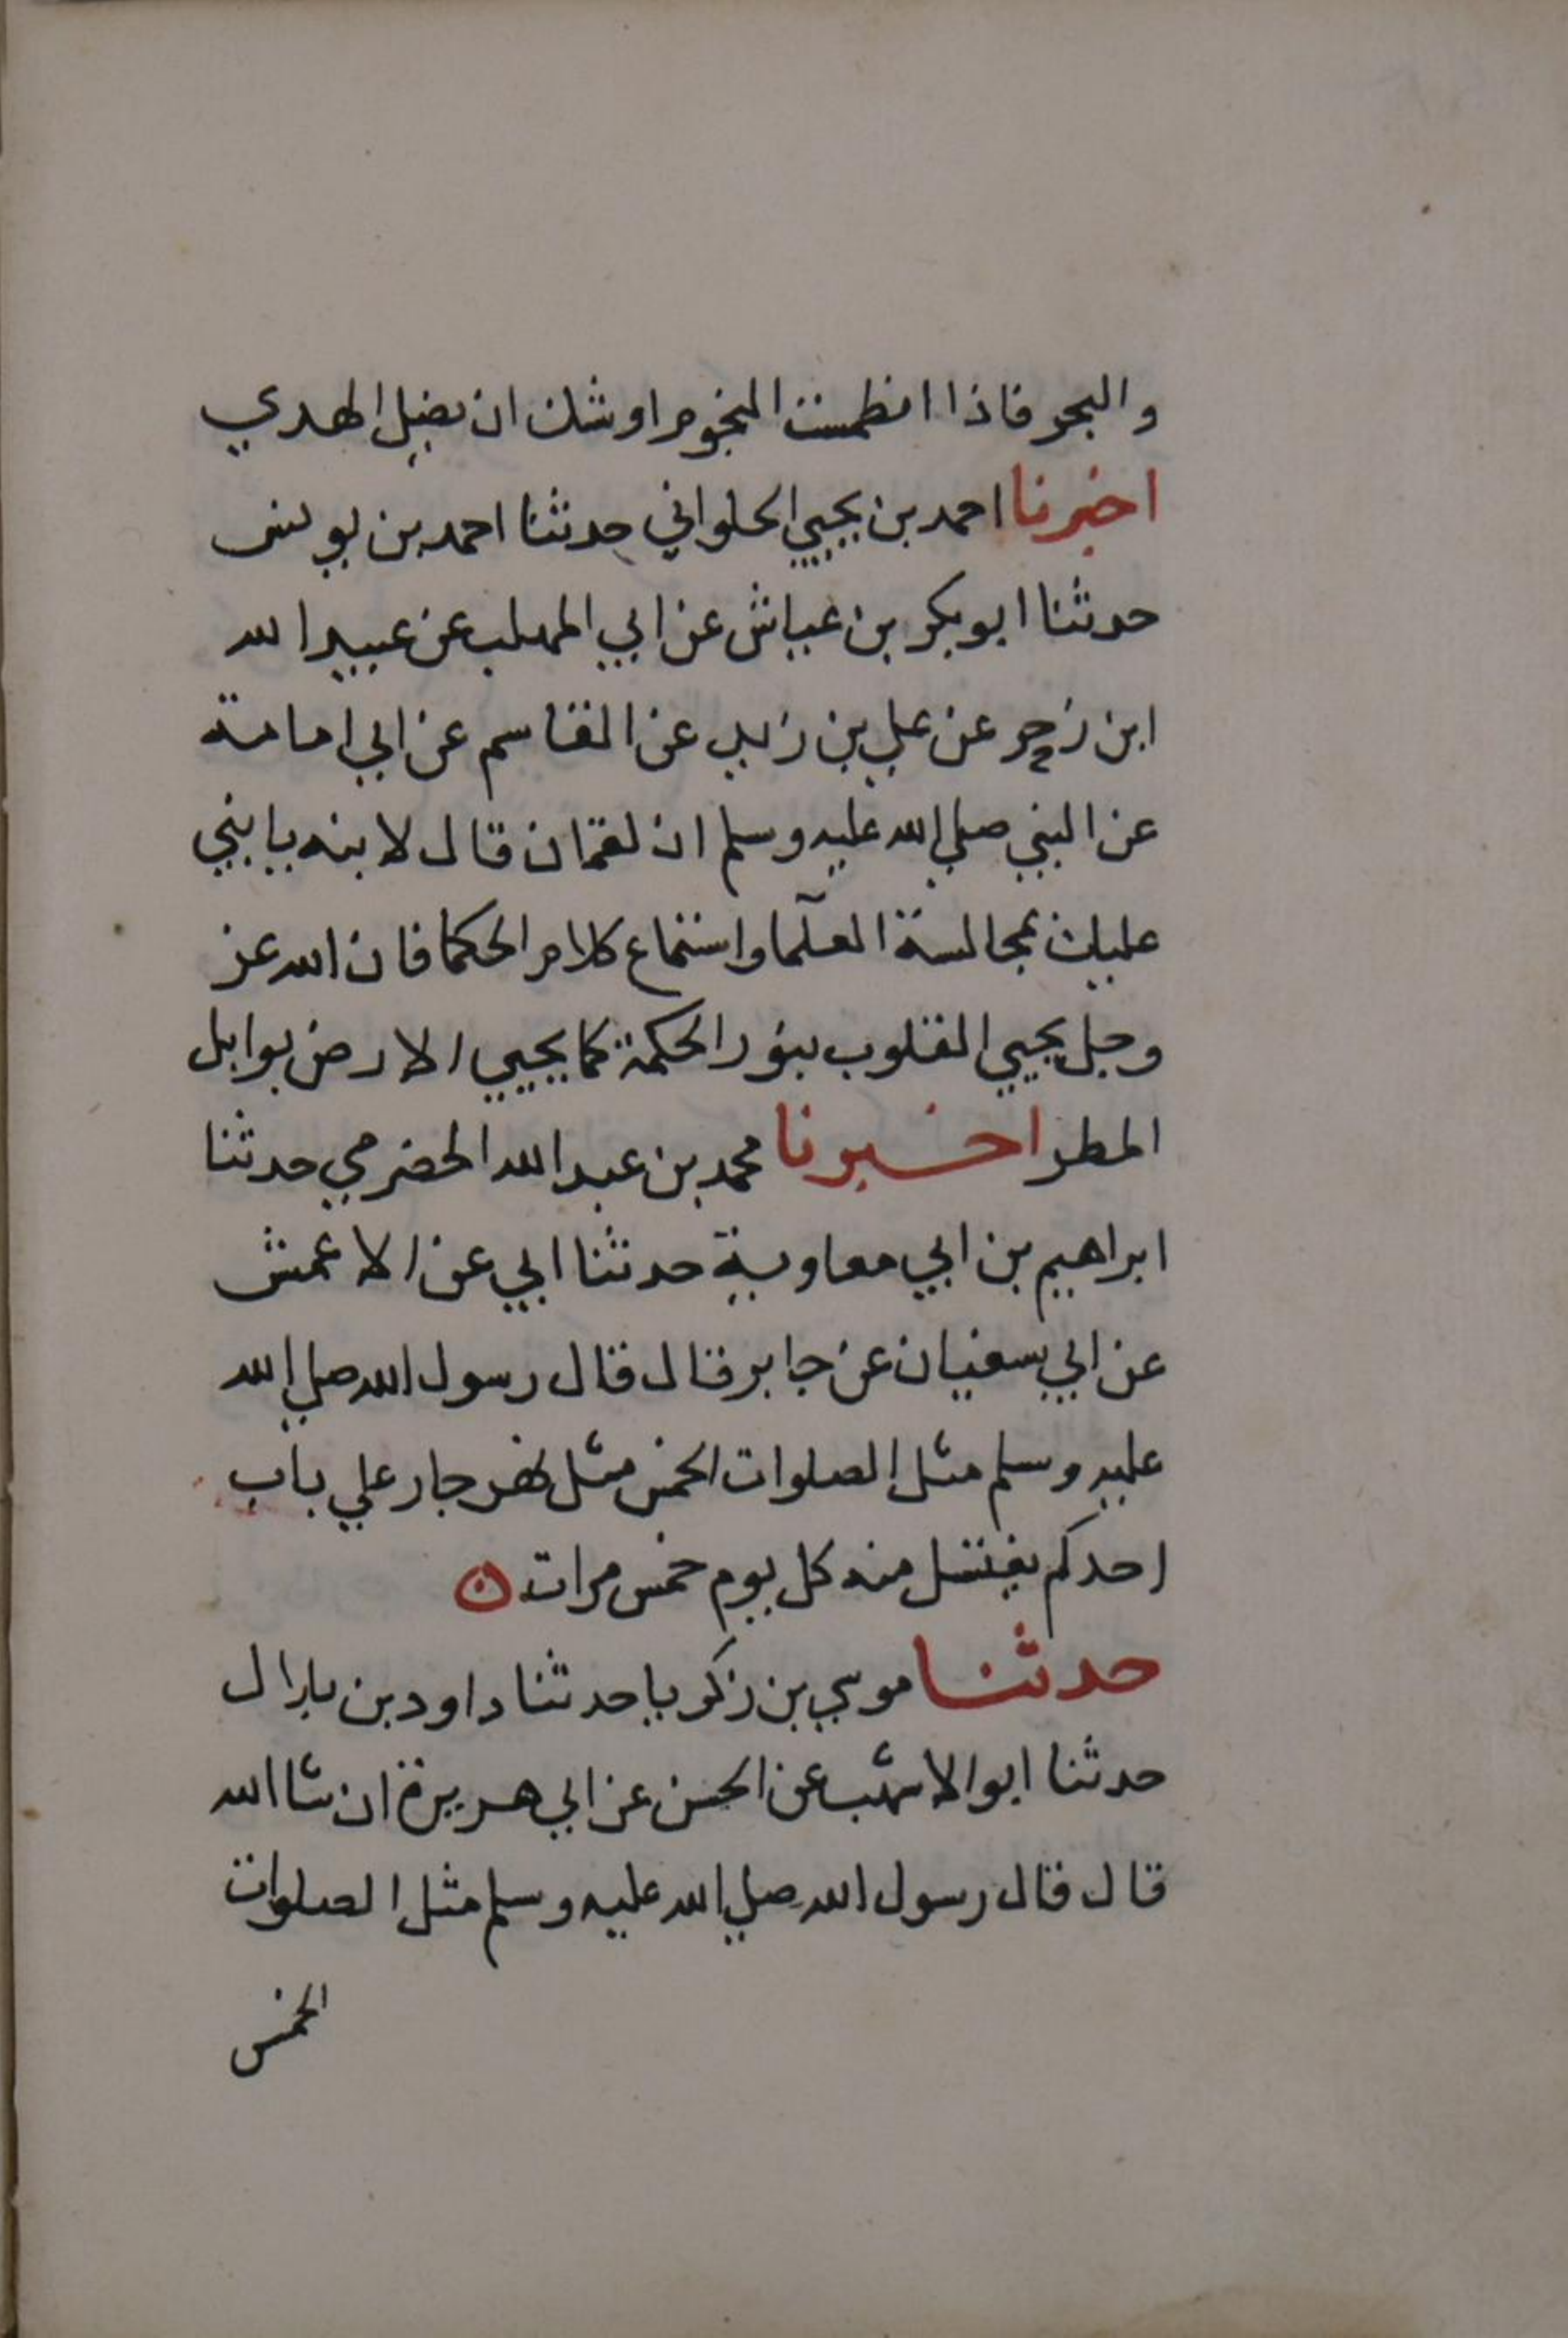 والبحر فاذا انطمست النجوم اوشك ان يضل الهدي
اخبرنا احمد بن يحيي الحلواني حدثنا احمد بن يونس
حدثنا ابو بكر بن عياش عن ابي المهلب عن عبيد الله
ابن زحر عن علي بن زيد عن القاسم عن ابي امامة
عن النبي صلي الله عليه وسلم ان لقمان قال لابنه يابني
عليك بمجالسة العلما واستماع كلام الحكما فان الله عز
وجل يحيي القلوب بنور الحكمة كما يحيي الارض بوابل
المطر اخبرنا محمد بن عبد الله الحضرمي حدثنا
ابراهيم بن ابي معاوية حدثنا ابي عن الاعمش
عن ابي سفيان عن جابر قال قال رسول الله صلي الله
عليه وسلم مثل الصلوات الخمس مثل نهر جار علي باب
احدكم يغتسل منه كل يوم خمس مرات ه
حدثنا موسي بن زكريا حدثنا داود بن
حدثنا ابو الاشهب عن الحسن عن ابي هريرة ان شا الله
قال قال رسول الله صلي الله عليه وسلم مثل الصلوات
الخمس